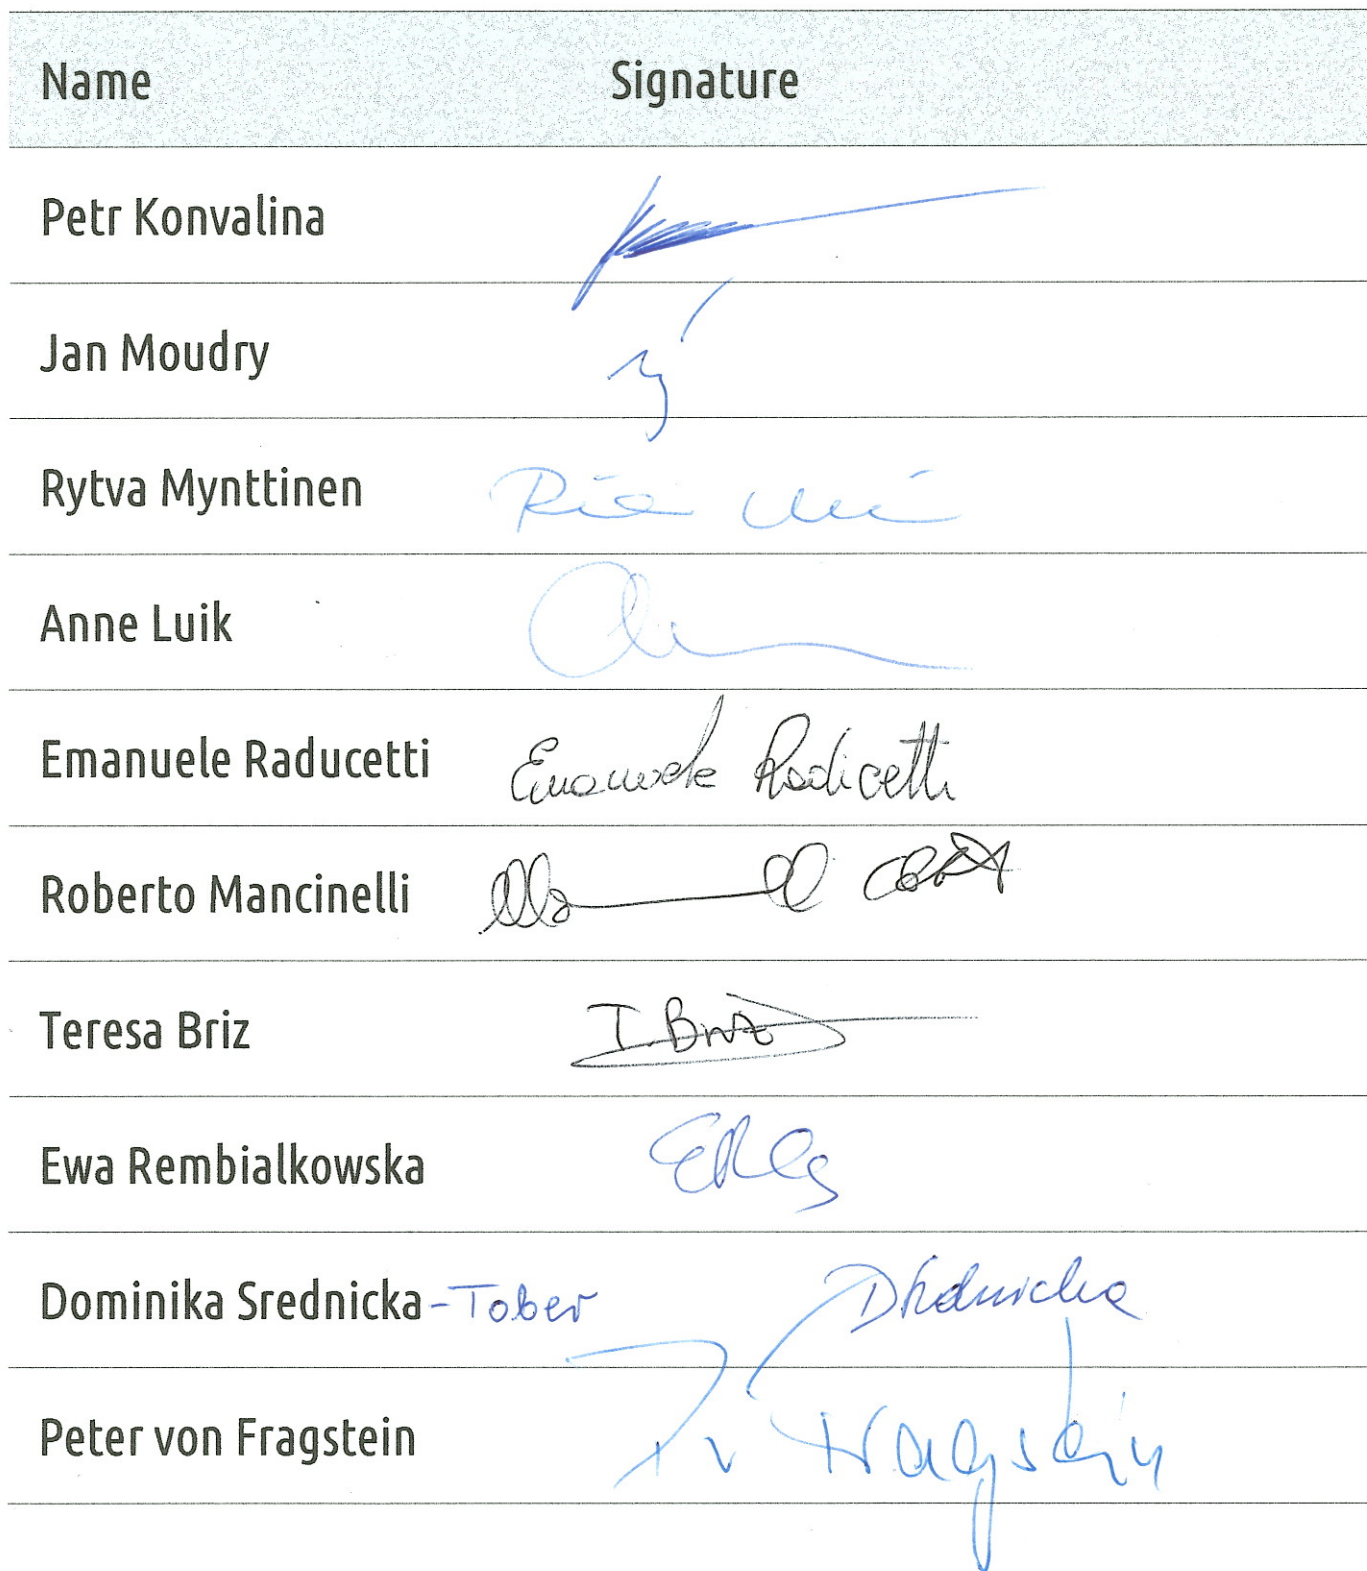 Name Signature
Petr Konvalina
Jan Moudry
Rytva Mynttinen
Anne Luik
Emanuele Raducetti Emanuele Radicetti
Roberto Mancinelli
Teresa Briz T. Briz
Ewa Rembialkowska
Dominika Srednicka -Tober DSrednicka
Peter von Fragstein P v Fragstein